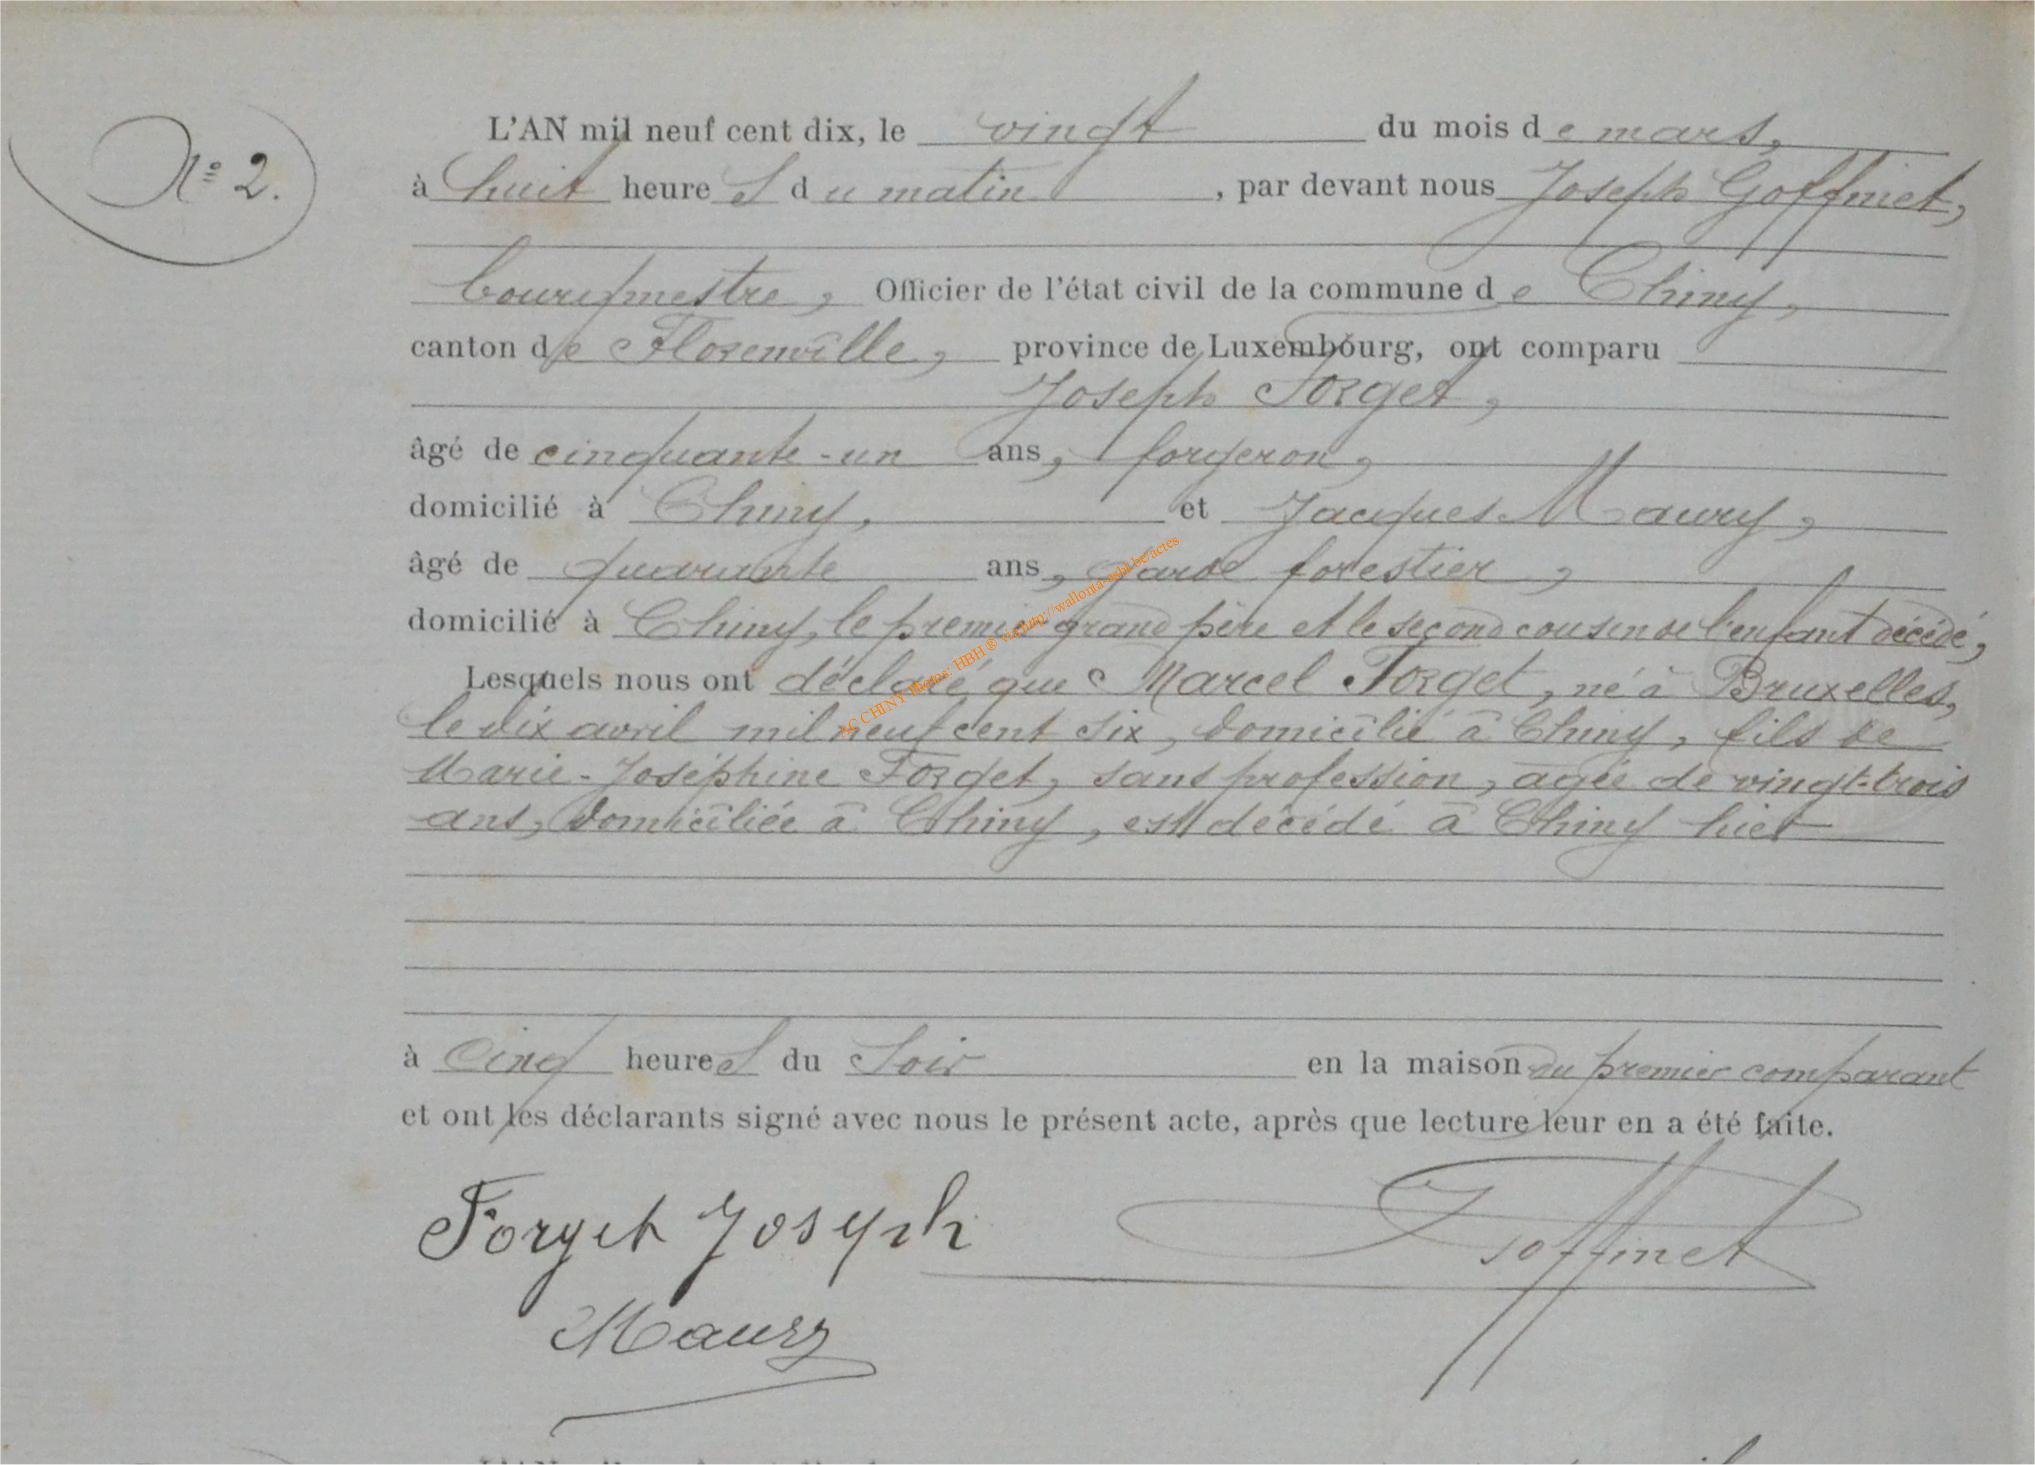 L'AN mil neuf cent dix, le vingt du mois de mars,
N° 2.
à huit heures du matin, par devant nous Joseph Goffinet,
bourgmestre, Officier de l'état civil de la commune de Chiny,
canton de Florenville, province de Luxembourg, ont comparu
Joseph Forget,
âgé de cinquante-un ans, forgeron,
domicilié à Chiny, et Jacques Maury,
âgé de quarante ans, garde forestier,
domicilié à Chiny, le premier grand père et le second cousin de l'enfant décédé,
Lesquels nous ont déclaré que Marcel Forget, né à Bruxelles,
le dix avril mil neuf cent six, domicilié à Chiny, fils de
Marie-Joséphine Forget, sans profession, agée de vingt-trois
ans, domiciliée à Chiny, est décédé à Chiny hier
à cinq heures du soir en la maison du premier comparant
et ont les déclarants signé avec nous le présent acte, après que lecture leur en a été faite.
Forget Joseph Goffinet
Maury
AC CHINY Photos: HBH ® via http://wallonia-asbl.be/actes